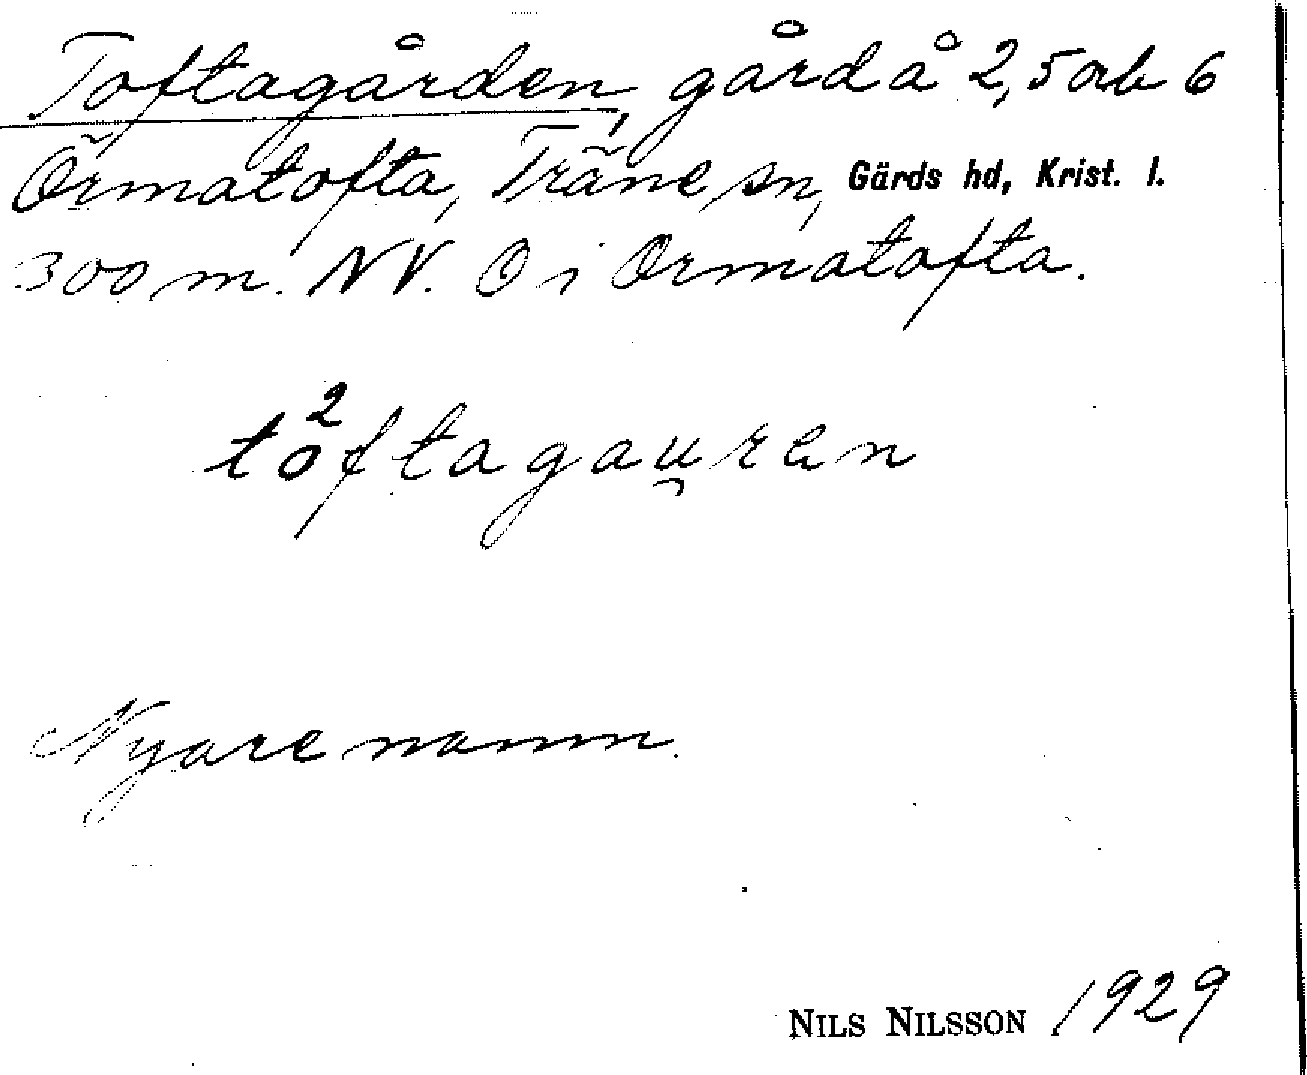 Toftagården, gård å 2,5 ab 6
Ormatofta, Träne sn, Gärds hd, Krist. l.
300 m. NV. O i Ormatofta.
to²ftagau̯ren
Nyare namn.
NILS NILSSON 1929